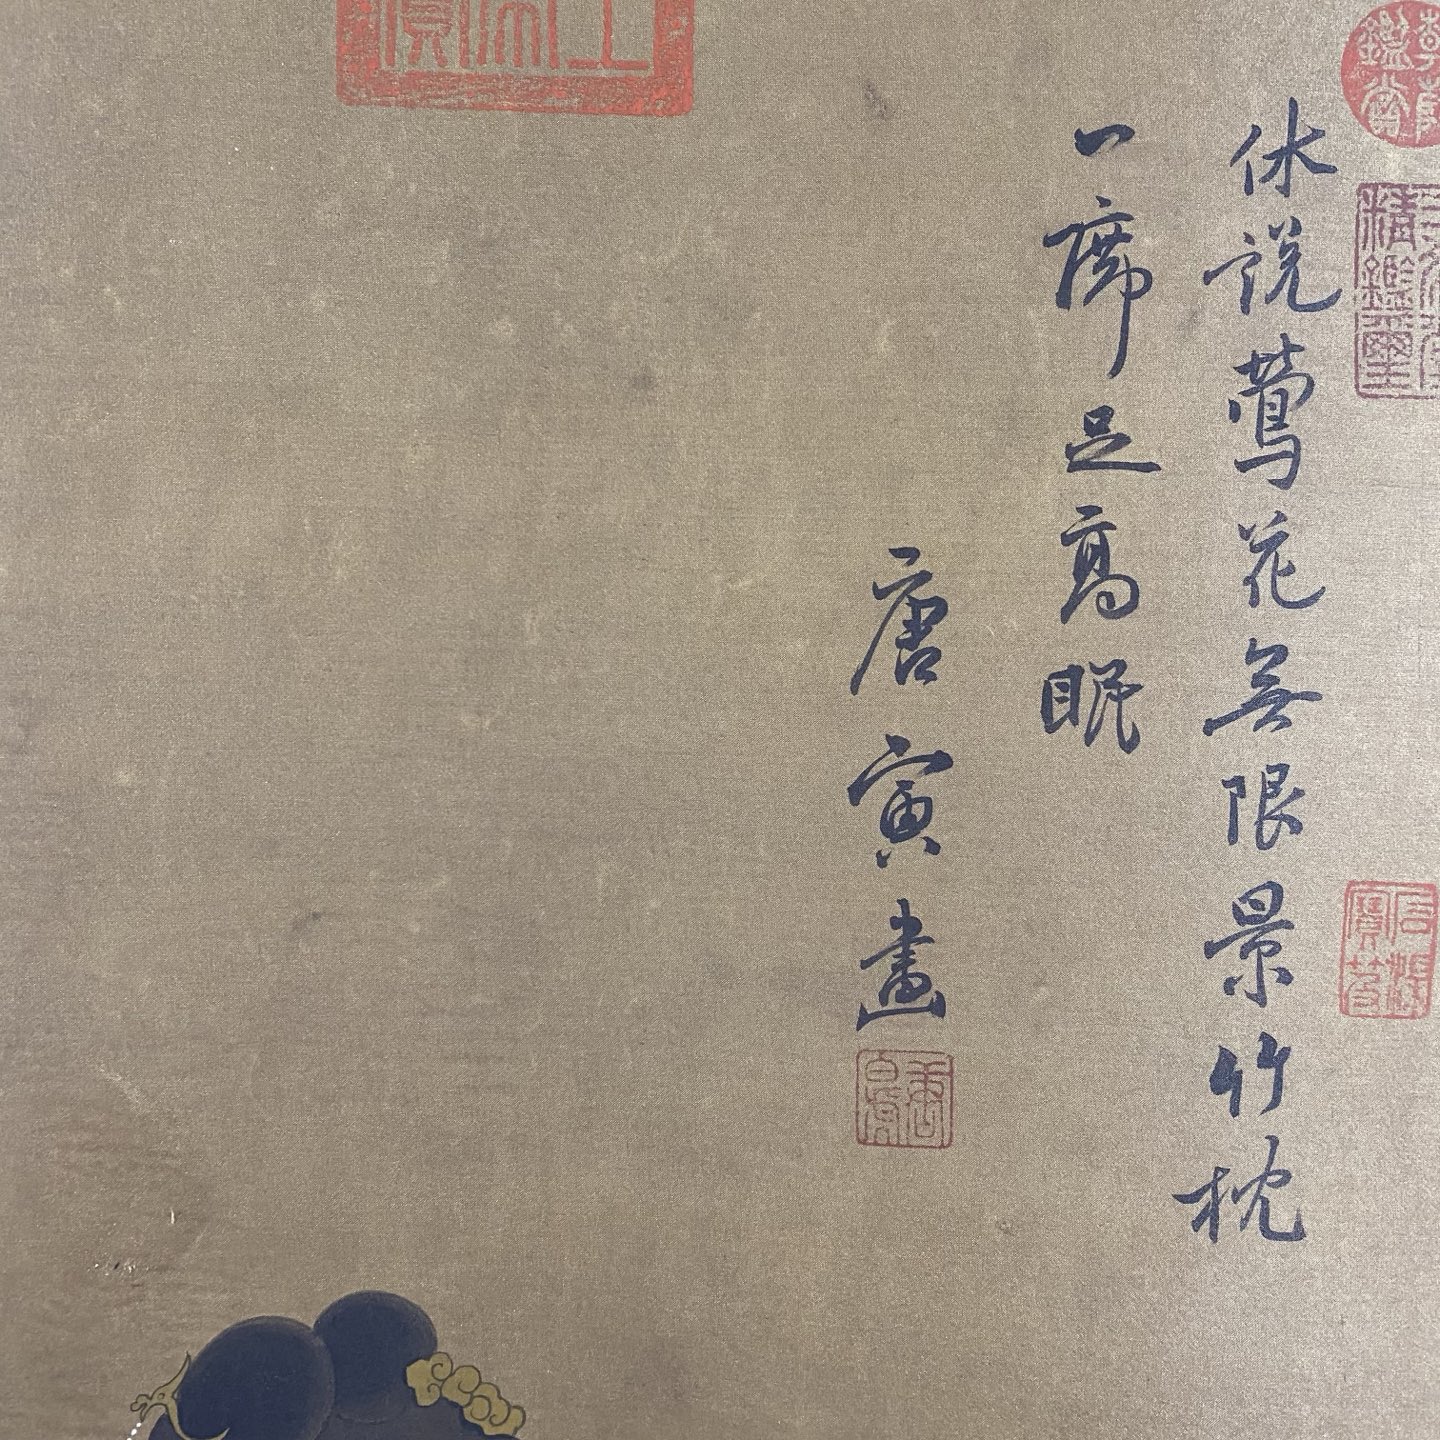 休说莺花無限景竹枕
一席足高眠
唐寅畫